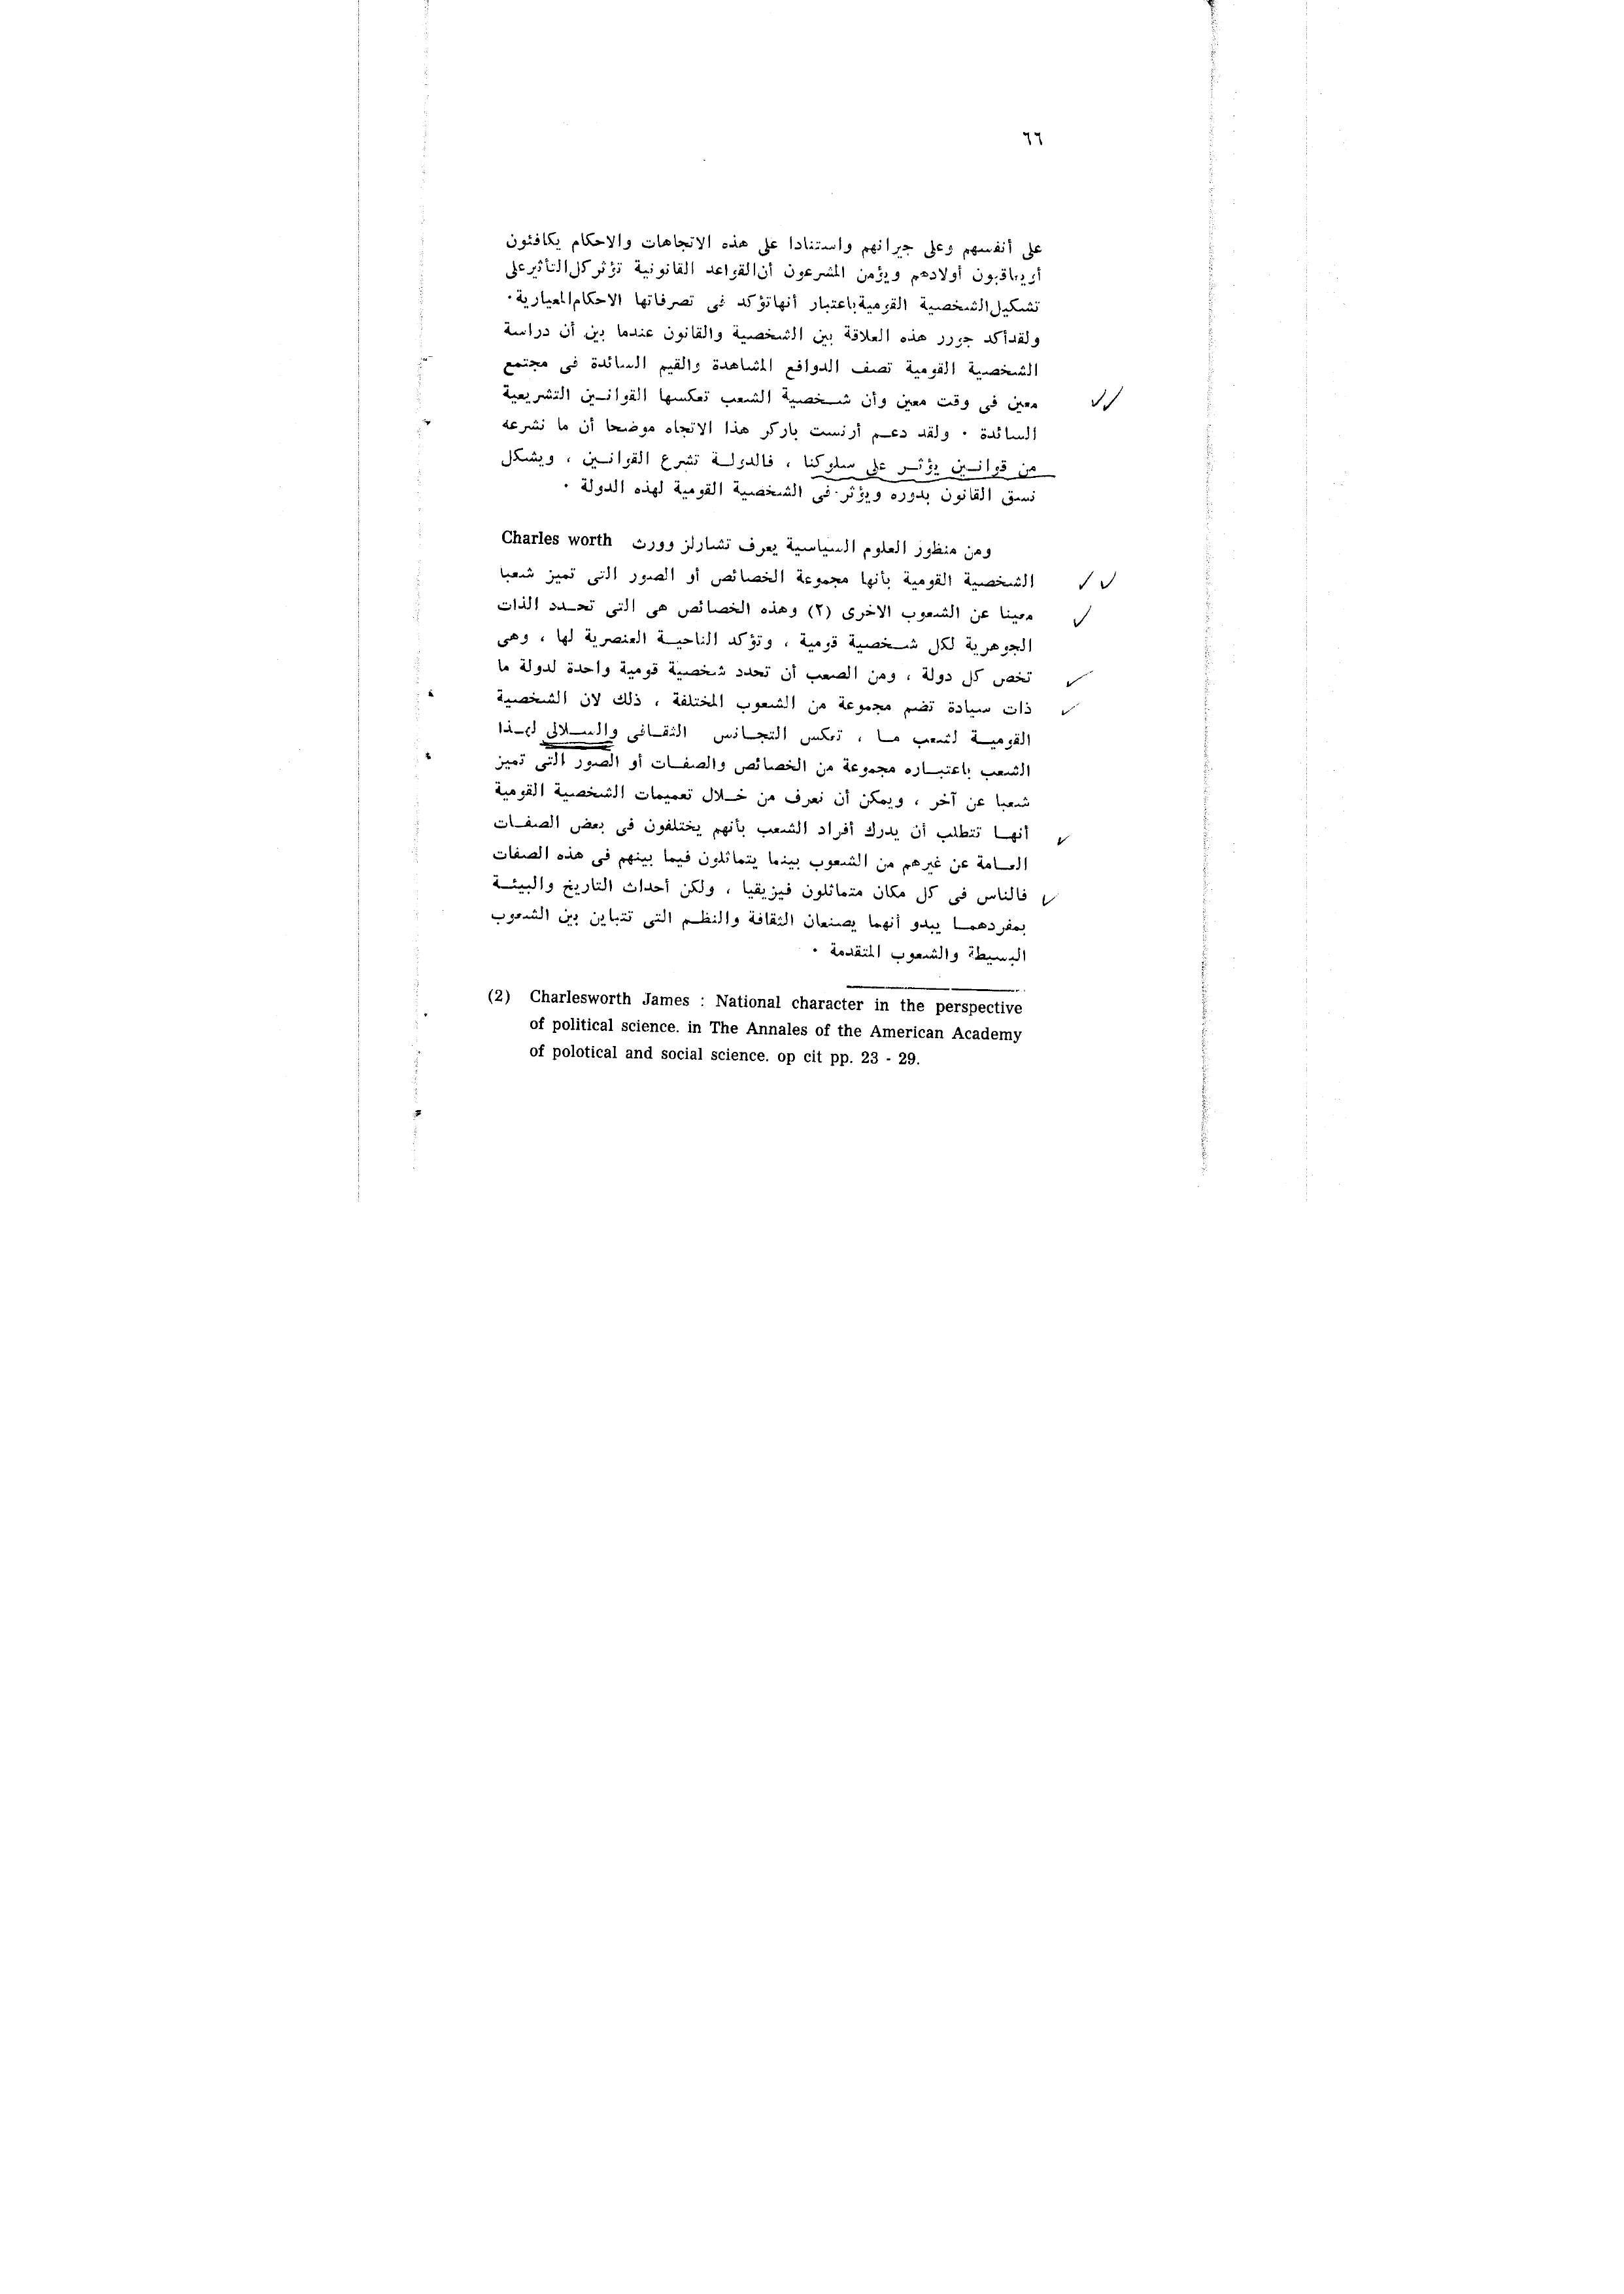 ٦٦
على أنفسهم وعلى جيرانهم واستنادا على هذه الاتجاهات والاحكام يكافئون
أو يعاقبون أولادهم ويؤمن المشرعون أن القواعد القانونية تؤثر كل التأثير على
تشكيل الشخصية القومية باعتبار أنها تؤكد فى تصرفاتها الاحكام المعيارية ٠
ولقد أكد جورر هذه العلاقة بين الشخصية والقانون عندما بين أن دراسة
الشخصية القومية تصف الدوافع المشاهدة والقيم السائدة فى مجتمع
معين فى وقت معين وأن شخصية الشعب تعكسها القوانين التشريعية
السائدة ٠ ولقد دعم أرنست باركر هذا الاتجاه موضحا أن ما نشرعه
من قوانين يؤثر على سلوكنا ، فالدولة تشرع القوانين ، ويشكل
نسق القانون بدوره ويؤثر فى الشخصية القومية لهذه الدولة ٠
ومن منظور العلوم السياسية يعرف تشارلز وورث Charles worth
الشخصية القومية بأنها مجموعة الخصائص أو الصور التى تميز شعبا
معينا عن الشعوب الاخرى (٢) وهذه الخصائص هى التى تحدد الذات
الجوهرية لكل شخصية قومية ، وتؤكد الناحية العنصرية لها ، وهى
تخص كل دولة ، ومن الصعب أن تحدد شخصية قومية واحدة لدولة ما
ذات سيادة تضم مجموعة من الشعوب المختلفة ، ذلك لان الشخصية
القومية لشعب ما ، تعكس التجانس الثقافى والسلالى لهذا
الشعب باعتباره مجموعة من الخصائص والصفات أو الصور التى تميز
شعبا عن آخر ، ويمكن أن نعرف من خلال تعميمات الشخصية القومية
أنها تتطلب أن يدرك أفراد الشعب بأنهم يختلفون فى بعض الصفات
العامة عن غيرهم من الشعوب بينما يتماثلون فيما بينهم فى هذه الصفات
فالناس فى كل مكان متماثلون فيزيقيا ، ولكن أحداث التاريخ والبيئة
بمفردهما يبدو أنهما يصنعان الثقافة والنظم التى تتباين بين الشعوب
البسيطة والشعوب المتقدمة ٠
(2) Charlesworth James : National character in the perspective
of political science. in The Annales of the American Academy
of polotical and social science. op cit pp. 23 - 29.